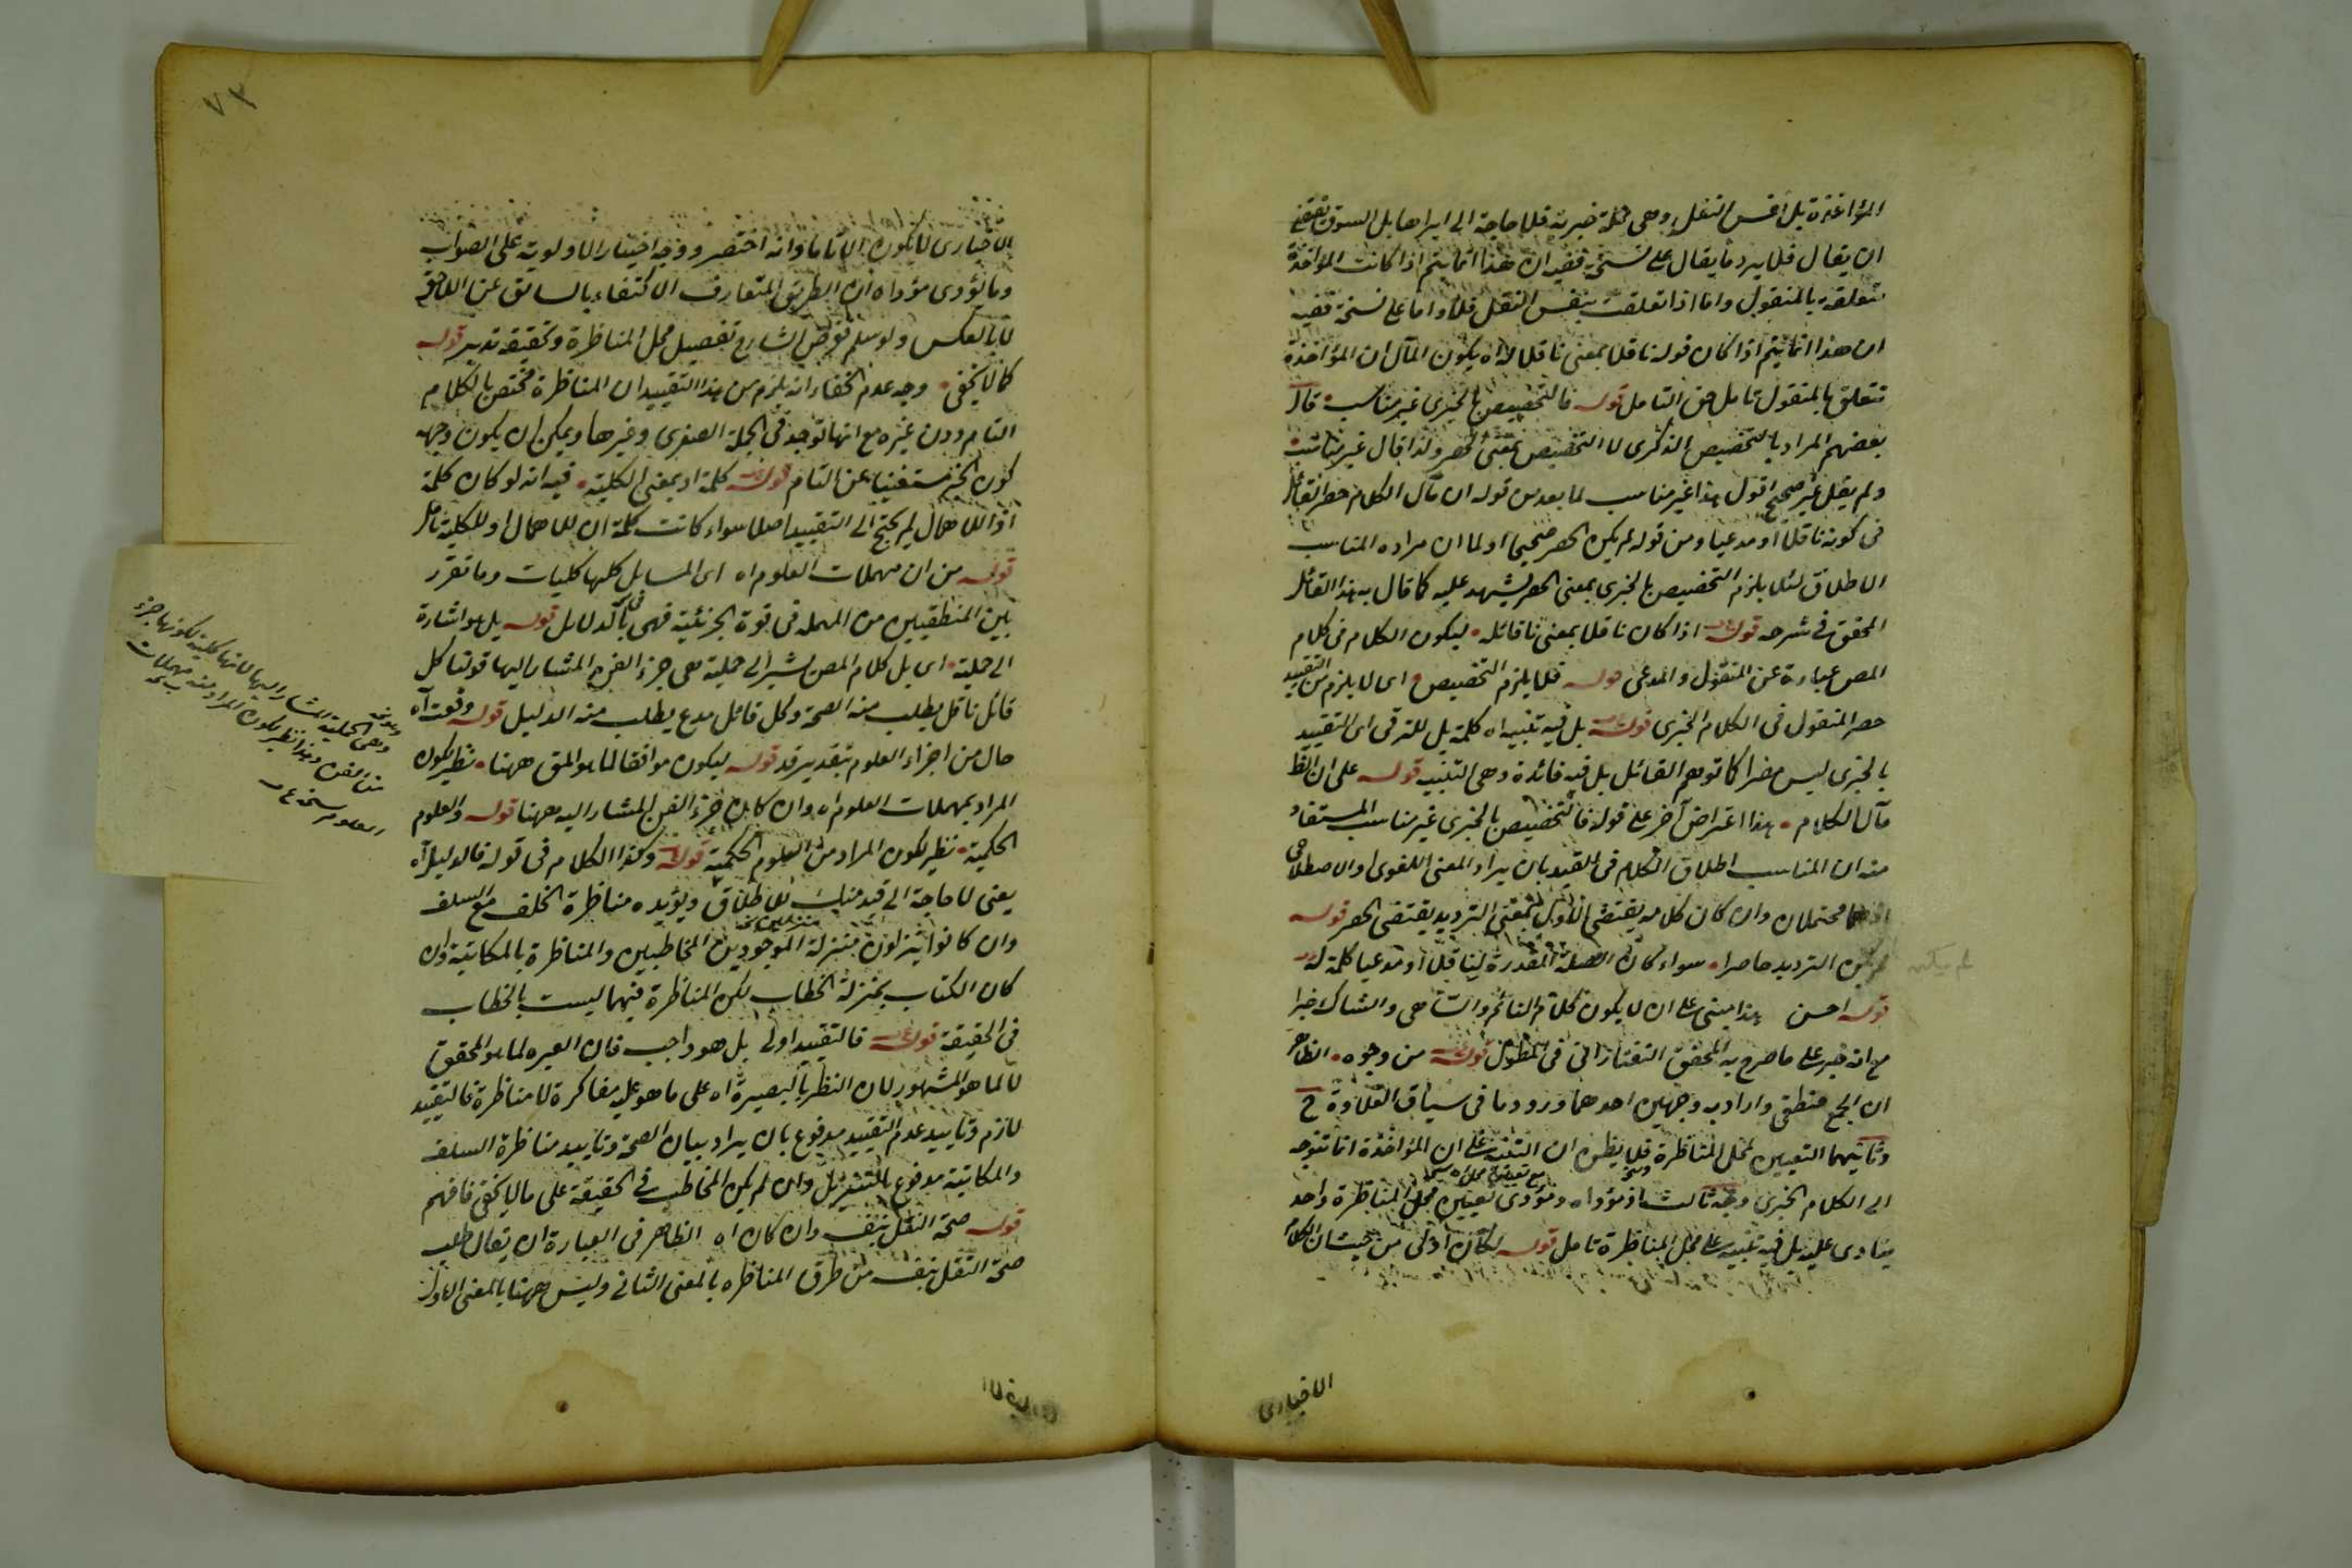 المؤاخذة بل نفس النقل وهى جملة خبرية فلا حاجة الى ايرادها بل السوق يقتضى
ان يقال فلا يرد ما يقال على نسخة ففيه ان هذا انما يتم اذا كانت المؤاخذة
متعلقة بالمنقول واما اذا تعلقت بنفس النقل فلا واما على نسخة ففيه
ان هذا انما يتم اذا كان قوله ناقلا بمعنى ناقلا لا اه يكون المآل ان المؤاخذة
تتعلق بالمنقول تامل حق التامل قوله فالتخصيص بالخبرى غير مناسب قال
بعضهم المراد بالتخصيص الذكرى لا التخصيص بمعنى الحصر ولذا قال غير مناسب
ولم يقل غير صحيح اقول هذا غير مناسب لما بعد من قوله ان مآل الكلام حصر القائل
فى كونه ناقلا او مدعيا ومن قوله لم يكن الحصر صحيحا اولا ان مراده المناسب
الاطلاق لئلا يلزم التخصيص بالخبرى بمعنى الحصر يشهد عليه كما قال به هذا القائل
المحقق فى شرحه قوله اذا كان ناقلا بمعنى ناقائله ليكون الكلام فى كلام
المص عبارة عن المنقول والمدعى قوله فلا يلزم التخصيص اى لا يلزم من التقييد
حصر المنقول فى الكلام الخبرى قوله بل فيه تنبيه اه كلمة بل للترقى اى التقييد
بالخبرى ليس مضرا كما توهم القائل بل فيه فائدة وهى التنبيه قوله على ان الظ
مآل الكلام هذا اعتراض آخر على قوله فالتخصيص بالخبرى غير مناسب المستفاد
منه ان المناسب اطلاق الكلام فى القيد بان يراد المعنى اللغوى والاصطلاحى
اذ هما محتملان وان كان كلامه يقتضى الاول بمعنى الترديد يقتضى الحصر قوله
لم يكن الترديد حاصرا سواء كان الصلة المقدرة لناقلا او مدعيا كلمة له
لم يكن
قوله احسن هذا مبنى على ان لا يكون كلام النائم والساهى والشاك خبرا
مع انه خبر على ما صرح به المحقق التفتازانى فى المطول قوله من وجوه الظاهر
ان الجمع منطقى واراد به وجهين احدهما ورود ما فى سياق العلاوة ح
وثانيهما التعيين لمحل المناظرة فلا يظن ان التنبيه على ان المؤاخذة انما تتوجه
الى الكلام الخبرى وجه ثالث اذ مؤداه ومؤدى تعيين محل المناظرة واحد
ينادى عليه بل فيه تنبيه على محل المناظرة تامل قوله لكان اولى من حيث ان الكلام
الاخبارى
٧٣
الاخبارى لا يكون الا تاما وانه اختصر ووجه اختيار الاولوية على الصواب
وما يؤدى مؤداه ان الطريق المتعارف الاكتفاء بالسابق عن اللاحق
لا بالعكس ولو سلم فغرض الشارح تفصيل محل المناظرة وتحقيقه تدبر قوله
كما لا يخفى وجه عدم الخفاء انه يلزم من هذا التقييد ان المناظرة مختص بالكلام
التام دون غيره مع انها توجد فى الجملة الصغرى وغيرها ويمكن ان يكون وجهه
كون الخبر مستغنيا عن التام قوله كلمة اذ بمعنى الكلية فيه انه لو كان كلمة
اذا للاهمال لم يحتج الى التقييد اصلا سواء كانت كلمة ان للاهمال او للكلية تامل
قوله من ان مهملات العلوم اه اى المسايل كلها كليات وما تقرر
بين المنطقيين من المهملة فى قوة الجزئية فهى فى الدلايل قوله بل هو اشارة
الى حملية اى بل كلام المص يشير الى حملية هى جزء الفن المشار اليها قولنا كل
قائل ناقل يطلب منه الصحة وكل قائل مدع يطلب منه الدليل قوله وقعت اه
حال من اجزاء العلوم بتقدير قد قوله ليكون موافقا لما هو المق ههنا نظير لكون
المراد بمهملات العلوم اه وان كان جزء الفن المشار اليه ههنا قوله والعلوم
الحكمية نظير لكون المراد من العلوم الحكمية قوله وكذا الكلام فى قوله فالدليل اه
يعنى لا حاجة الى قيد منك للاطلاق ويؤيده مناظرة الخلف مع السلف
وان كانوا ينزلون بمنزلة الموجودين المخاطبين والمناظرة بالمكاتبة وان
كان الكتاب بمنزلة الخطاب لكن المناظرة فيهما ليست بالخطاب
فى الحقيقة قوله فالتقييد اولى بل هو واجب فان العبرة لما هو المحقق
لا لما هو المشهور لان النظر بالبصيرة اه على ما هو عليه مفاكرة لا مناظرة فالتقييد
لازم وتاييد عدم التقييد مدفوع بان يراد بيان الصحة وتاييد مناظرة السلف
والمكاتبة مدفوع بالتنزيل وان لم يكن المخاطب فى الحقيقة على ما لا يخفى فافهم
قوله صحة النقل بنف وان كان اه الظاهر فى العبارة ان يقال طلب
صحة النقل بنف من طرق المناظره بالمعنى الثانى وليس ههنا بالمعنى الاول
وهى الحملية المشار اليها لانها كلية لكونها جزء
من الفن وهذا نظير لكون المراد من مهملات
العلوم نسخه